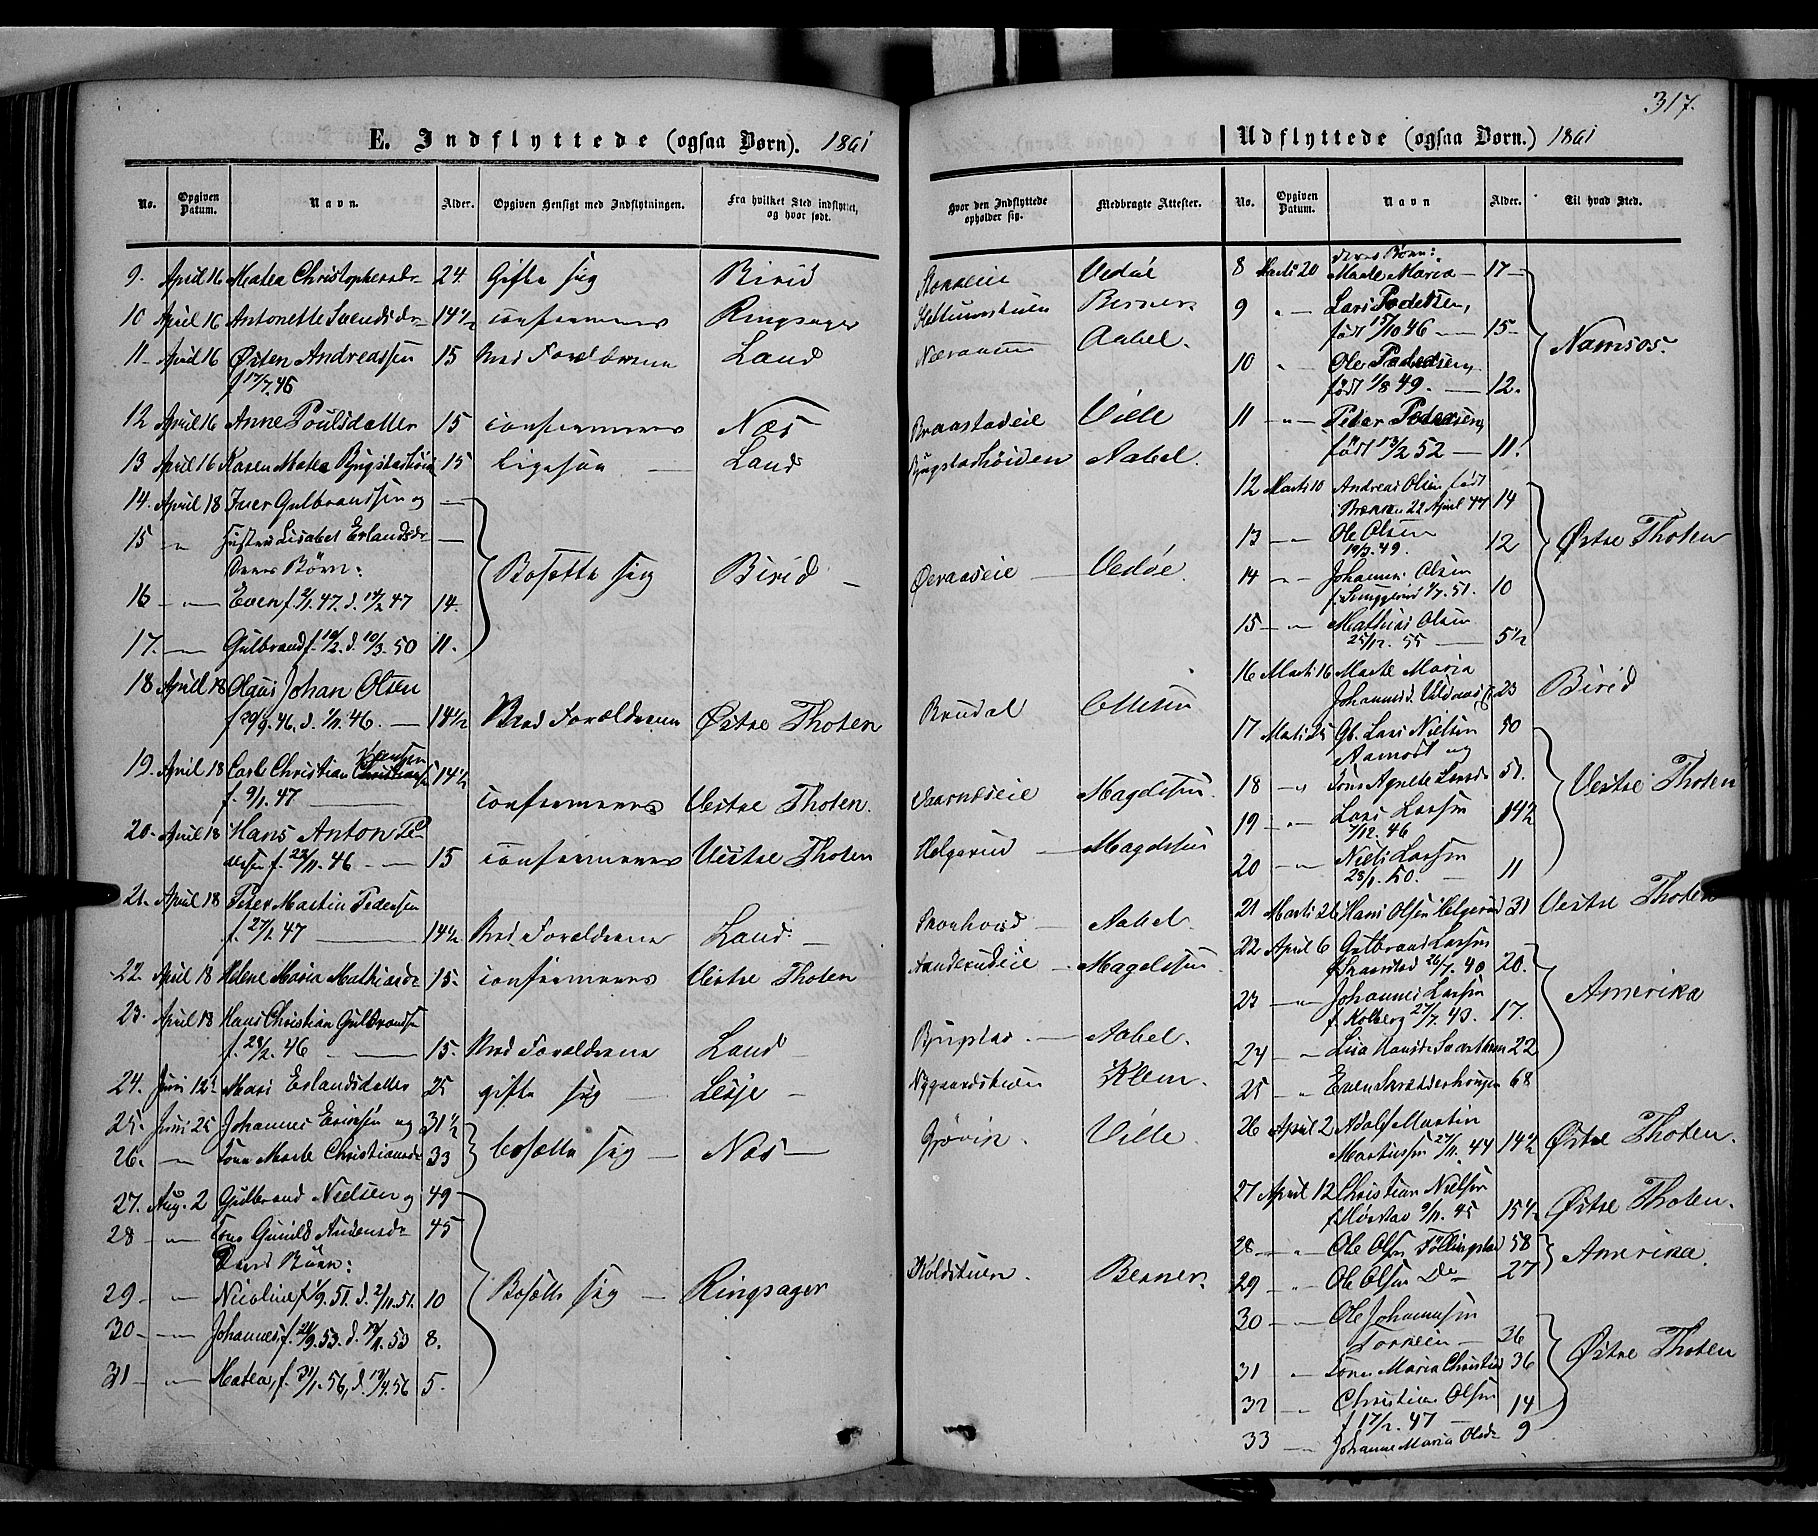 317.
E. Indflyttede (ogsaa Børn). 1861
No. Opgiven Datum. Navn. Alder. Opgiven Hensigt med Indflytningen. Fra hvilket Sted indflyttet, og hvor født.
9. April 16 Matea Christophersd. 24. Gifte sig Birid
10 April 16 Antonette Svendsdr 14½ confirmeres Ringsager
11 April 16 Østen Andreassen 15 Med Forældrene Land
f 17/7.45
12 April 16 Anne Poulsdatter 15 confirmeres Næs
13 April 16 Karen Matea 15 ligesaa — Land
14. April 18 Iver Gulbrandsen og —
15 〃 Hustru Lisabet Erlandsdr —
Deres Børn: Bosætte sig Birid —
16 — 〃 — Even f. 2/1.47. d. 14/2 47 14.
17. — 〃 — Gulbrand f. 10/2. d. 10/3.50 11.
18 April 18 Olaus Johan Olsen
f 29/9.46. d. 1/11.46. — 14½ Med Forældrene Østre Thoten
19. April 18 Carl Christian 14½
f. 9/1.47 — confirmeres Vestre Thoten.
20. April 18 Hans Anton Pe-
dersen f. 46 — 15 confirmeres Vestre Thoten
21. April 18 Peter Martin Pedersen
f. 27/1 47 — 14½ Med Forældrene Land —
22. April 18 Helene Maria Mathiasdr 15. confirmeres Vestre Thoten
23. April 18 Hans Christian Gulbrandsen
f. 28/2.46 — 15. Med Forældrene Land —
24. Juni 12 Mari Erlandsdatter 25 gifte sig — Lesje —
25. Juni 25 Johannes Ericsen og 31½
26. — 〃 — Kone Marte Christiansdr 33 bosætte sig — Næs —
27. Aug. 2 Gulbrand Nielsen og 49
28 — 〃 — Kone Gunild 45
Deres Børn:
29 — 〃 Nicoline f. 1/9.51. d. 2/11.51. 10 Bosætte sig — Ringsager
30 — 〃 Johannes f. 9.53. d. 11.53 8.
31 — 〃 Matea, f. 1.56, d. 13/4.56 5.
Hvor den Indflyttede opholder sig. Medbragte Attester.
Vedøe
Berner
Næraasen Aabel.
Braastadeie Ville
Bjugstadhøiden Aabel.
Øveraaseie — Vedøe.
Brudal Ottesen
Magelssen.
Helgerud — Magelssen
Aabel.
Magelssen
Bjugstad. — Aabel.
Nygaardstuen Klem.
Gjøvik. Ville.
Berner.
Udflyttede (ogsaa Børn.) 1861
No. Opgiven Datum. Navn Alder. Til hvad Sted.
deres Børn:
8 Marts 20 Marte Maria — 17 —
9 〃 — Lars Pedersen,
født 15/10 46 — 15 — Namsos.
10 〃 Ole Pedersen,
født 1/8 49. — 12.
11 — 〃 — Peter Pedersen,
født 13/2 52 — 11.
12 Marts 10 Andreas Olsen født
22 April 47 14
13 — 〃 Ole Olsen
19/3.49. 12 Østre Thoten
14 〃 — Johannes Olsen
7.51. 10
15 — 〃 Mathias Olsen
25/12. 55 — 5½
16 Marts 16 Marte Maria
Johannesd. 23 Birid
17 Marts 25 Gb. Lars Nielsen 50
Aamodt og
18 〃 Kone Agnete Larsd. 51. Vestre Thoten
19 — 〃 — Lars Larsen 14½
12.46
20 — 〃 Niels Larsen
28/1.50. — 11
21 Marts 26 Hans Olsen Helgerud 31 Vestre Thoten
22 April 6 Gulbrand Larsen
26/7.40 20.
23 — 〃 Johannes Larsen Amerika
f. Kolberg 27/7.43. 17.
24 — 〃 Lisa Hansdr 22
25 〃 Even Skrædderhougen 68
26 April 2 Adolf Martin
Martinssen 27/11.44 14½ Østre Thoten.
27 April 12 Christian Nielsen
9/11.45 15½ Østre Thoten.
28 — 〃 Ole OlsenFøllingstad 58
29 — 〃 Ole Olsen Do 27 Amerika.
30 — 〃 — Ole Johannesen
— 36
31 〃 Kone Maria 36 Østre Thoten
32 — 〃 Christian Olsen 14
f 17/2.47 —
33 — 〃 Johanne Maria Olsdr 9